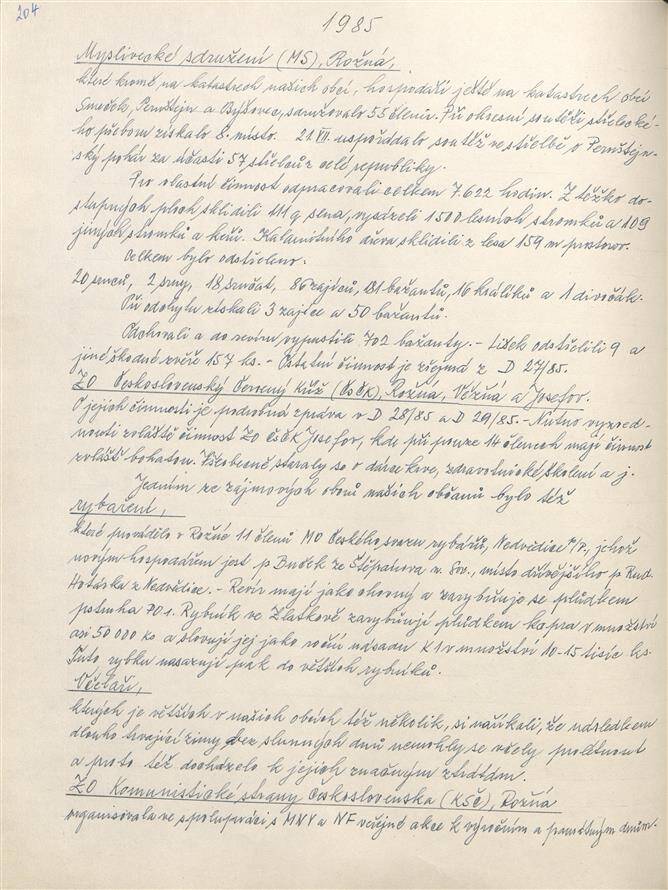 204
1985
Myslivecké sdružení (MS), Rožná,
které kromě na katastrech našich obcí, hospodaří ještě na katastrech obcí
Smrček, Pernštejn a Byšovec, sdružovalo 55 členů. Při okresní soutěži střelecké-
ho přeboru získalo 8. místo. 21. VII. uspořádalo soutěž ve střelbě o Pernštejn-
ský pohár za účasti 57 střelců z celé republiky.
Pro vlastní činnost odpracovali celkem 7.622 hodin. Z těžko do-
stupných ploch sklidili 111 q sena, vysázeli 1500 lesních stromků a 109
jiných stromků a keřů. Kalamitního dřeva sklidili z lesa 159 m prostor.
Celkem bylo odstřeleno:
20 srnců, 2 srny, 18 srnčat, 86 zajíců, 81 bažantů, 16 králíků a 1 divočák.
Při odchytu získali 3 zajíce a 50 bažantů.
Odchovali a do revíru vypustili 702 bažanty. - Lišek odstřelili 9 a
jiné škodné zvěře 157 ks. - Ostatní činnost je zřejmá z D 27/85.
ZO Československý Červený kříž (ČsČK), Rožná, Věžná a Josefov.
O jejich činnosti je podrobná zpráva v D 28/85 a D 29/85. - Nutno vyzved-
nouti zvláště činnost ZO ČSČK Josefov, kde při pouze 14 členech mají činnost
zvlášť bohatou. Všeobecně staraly se o dárce krve, zdravotnické školení a j.
Jedním ze zájmových oborů našich občanů bylo též
rybaření,
které provádělo v Rožné 11 členů MO Českého svazu rybářů, Nedvědice n/P., jehož
novým hospodářem jest p. Buček ze Štěpánova n. Svr., místo dřívějšího p. Rud.
Hotárka z Nedvědice. - Revír mají jako chovný a zarybňuje se plůdkem
pstruha PO 1. Rybník ve Zlatkově zarybňují plůdkem kapra v množství
asi 50 000 ks a slovují jej jako roční násadu K1 v množství 10-15 tisíc ks.
Tuto rybku nasazují pak do větších rybníků.
Včelaři,
kterých je větších v našich obcích též několik, si naříkali, že následkem
dlouho trvající zimy bez slunných dnů nemohly se včely prolétnout
a proto též docházelo k jejich značným ztrátám.
ZO Komunistické strany Československa (KSČ), Rožná
organisovala ve spolupráci s MNV a NF veřejné akce k výročním a památným dnům.